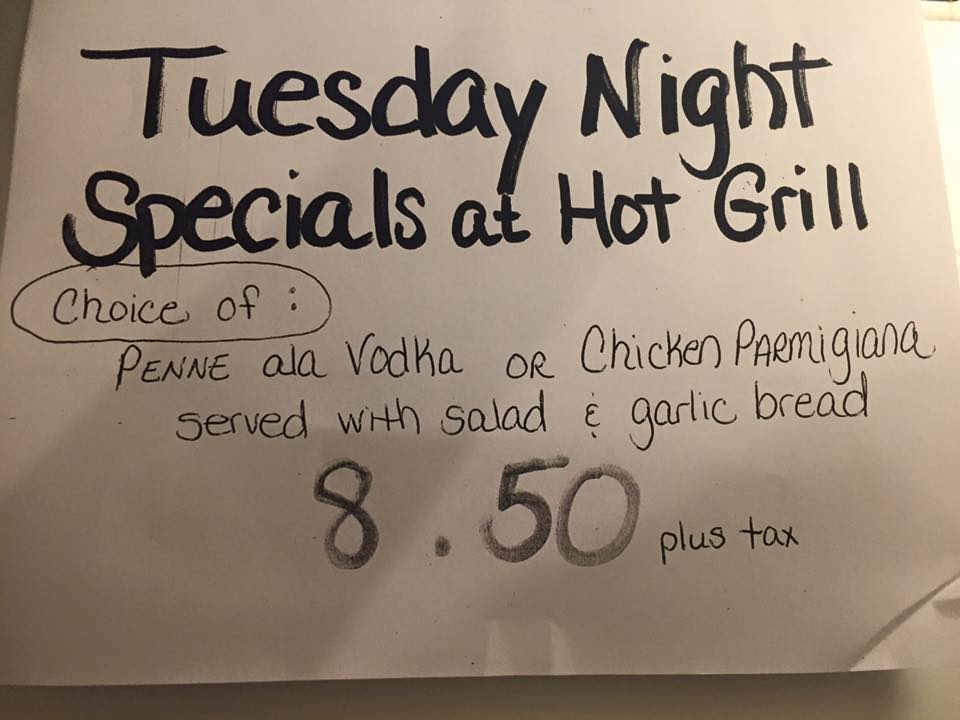 Tuesday Night
Specials at Hot Grill
Choice of :
PENNE ala Vodka OR Chicken PARmigiana
served with salad & garlic bread
8.50 plus tax